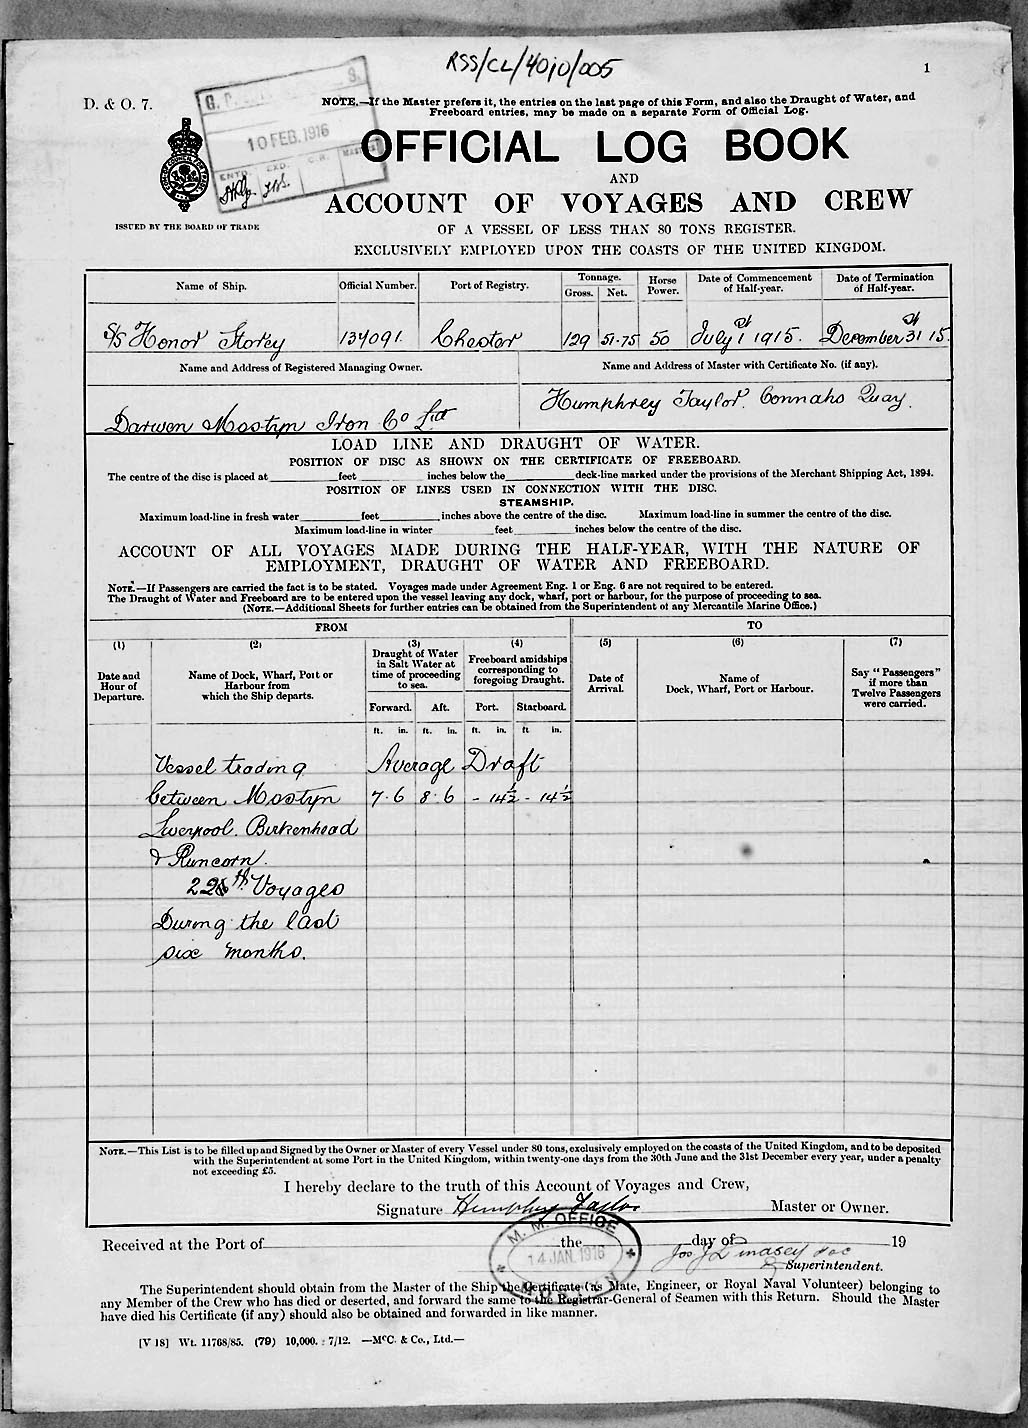 RSS/CL/4010/005
1
D. & O. 7.
10 FEB. 1916
ENTD. EXD. C.W.
NOTE.—If the Master prefers it, the entries on the last page of this Form, and also the Draught of Water, and
Freeboard entries, may be made on a separate Form of Official Log.
OFFICIAL LOG BOOK
AND
ACCOUNT OF VOYAGES AND CREW
OF A VESSEL OF LESS THAN 80 TONS REGISTER.
EXCLUSIVELY EMPLOYED UPON THE COASTS OF THE UNITED KINGDOM.
ISSUED BY THE BOARD OF TRADE
Name of Ship. Official Number. Port of Registry. Tonnage. Gross. Net. Horse Power. Date of Commencement of Half-year. Date of Termination of Half-year.
S/S Honor Storey 134091. Chester 129 51.75 50 July 1st 1915. December 31st 15.
Name and Address of Registered Managing Owner. Name and Address of Master with Certificate No. (if any).
Darwen Mostyn Iron Co Ltd
Humphrey Taylor. Connahs Quay.
LOAD LINE AND DRAUGHT OF WATER.
POSITION OF DISC AS SHOWN ON THE CERTIFICATE OF FREEBOARD.
The centre of the disc is placed at feet inches below the deck-line marked under the provisions of the Merchant Shipping Act, 1894.
POSITION OF LINES USED IN CONNECTION WITH THE DISC.
STEAMSHIP.
Maximum load-line in fresh water feet inches above the centre of the disc. Maximum load-line in summer the centre of the disc.
Maximum load-line in winter feet inches below the centre of the disc.
ACCOUNT OF ALL VOYAGES MADE DURING THE HALF-YEAR, WITH THE NATURE OF
EMPLOYMENT, DRAUGHT OF WATER AND FREEBOARD.
NOTE.—If Passengers are carried the fact is to be stated. Voyages made under Agreement Eng. 1 or Eng. 6 are not required to be entered.
The Draught of Water and Freeboard are to be entered upon the vessel leaving any dock, wharf, port or harbour, for the purpose of proceeding to sea.
(NOTE.—Additional Sheets for further entries can be obtained from the Superintendent of any Mercantile Marine Office.)
FROM TO
(1) (2) (3) (4) (5) (6) (7)
Date and Hour of Departure.
Name of Dock, Wharf, Port or Harbour from which the Ship departs.
Draught of Water in Salt Water at time of proceeding to sea.
Freeboard amidships corresponding to foregoing Draught.
Date of Arrival.
Name of Dock, Wharf, Port or Harbour.
Say "Passengers" if more than Twelve Passengers were carried.
Forward. Aft. Port. Starboard.
ft. in. ft. in. ft. in. ft in.
Vessel trading Average Draft
between Mostyn 7.6 8.6 - 14½ - 14½
Liverpool. Birkenhead
& Runcorn.
Voyages
During the last
six months.
NOTE.—This List is to be filled up and Signed by the Owner or Master of every Vessel under 80 tons, exclusively employed on the coasts of the United Kingdom, and to be deposited
with the Superintendent at some Port in the United Kingdom, within twenty-one days from the 30th June and the 31st December every year, under a penalty
not exceeding £5.
I hereby declare to the truth of this Account of Voyages and Crew,
Signature Humphrey Taylor Master or Owner.
M. M. OFFICE
14 JAN. 1916
MOSTYN
Received at the Port of the day of 19
Superintendent.
The Superintendent should obtain from the Master of the Ship the Certificate (as Mate, Engineer, or Royal Naval Volunteer) belonging to
any Member of the Crew who has died or deserted, and forward the same to the Registrar-General of Seamen with this Return. Should the Master
have died his Certificate (if any) should also be obtained and forwarded in like manner.
[V 18] Wt. 11768/85. (79) 10,000. : 7/12. —McC. & Co., Ltd.—